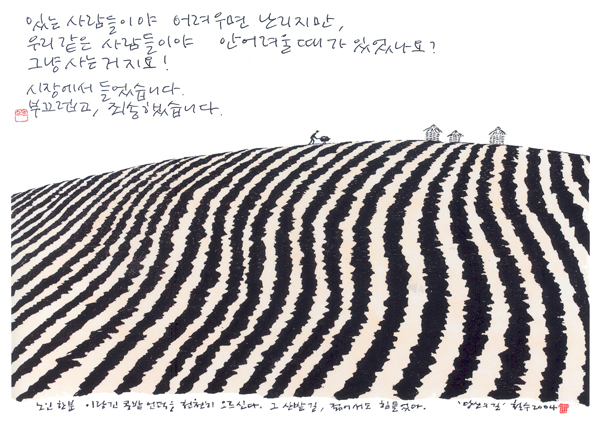 있는 사람들이야 어려우면 난리지만,
우리같은 사람들이야 안어려울때가 있었나요?
그냥 사는거지요!
시장에서 들었습니다.
부끄럽고, 죄송했습니다.
노인 한분 이랑긴 콩밭 언덕을 천천히 오르신다. 그 산밭길, 젊어서도 힘들었다. '당신의 길' 철수 2004